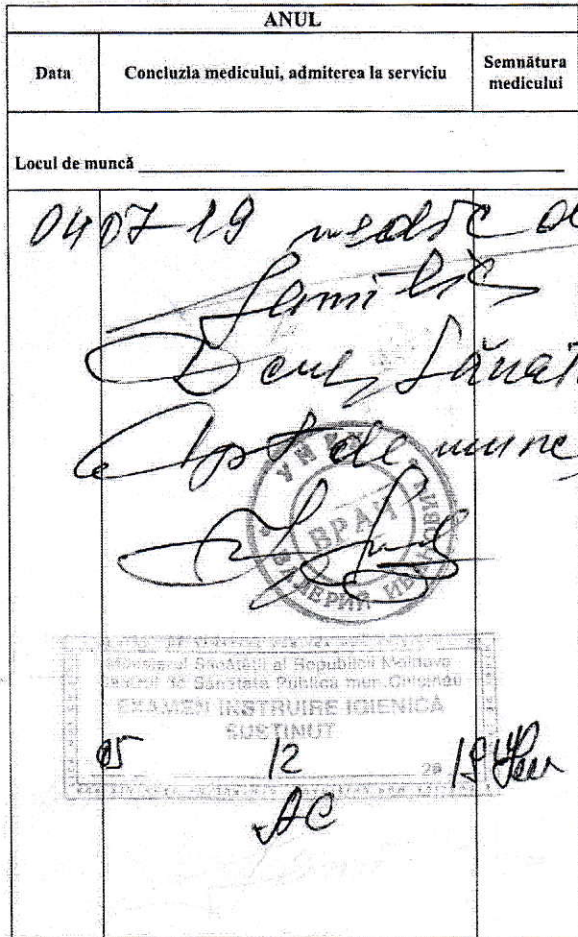 ANUL
Data
Concluzia medicului, admiterea la serviciu
Semnătura medicului
Locul de muncă
04 07 19 medic de
familie
sănăt
Apt de munc
ВРАЧ
ВАЛЕРИЙ
Ministerul Sănătății al Republicii Moldova
Centrul de Sănătate Publică mun. Chișinău
EXAMEN INSTRUIRE IGIENICĂ
SUSȚINUT
05 12 2019
AC